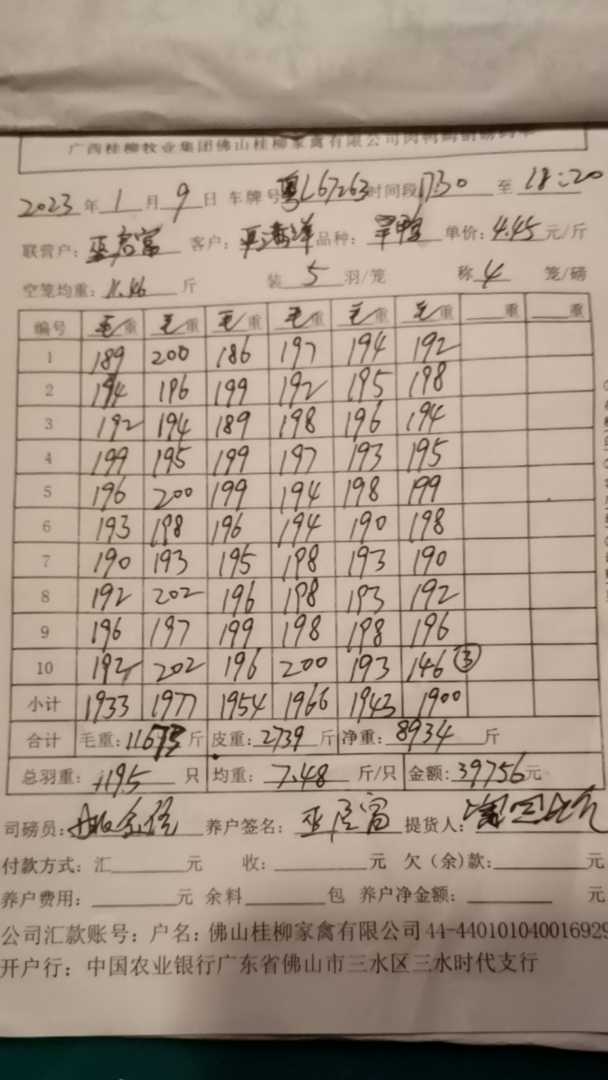 广西桂柳牧业集团佛山桂柳家禽有限公司肉鸭鹅销磅码单
2023年1月9日 车牌号粤L67263时间段17:30至18:20
联营户:巫启富 客户: 品种: 单价:4.45元/斤
空笼均重:11.46斤 装5羽/笼 称4笼/磅
编号 毛重 毛重 毛重 毛重 毛重 毛重 重 重
1 189 200 186 197 194 192
2 194 196 199 192 195 198
3 192 194 189 198 196 194
4 199 195 199 197 193 195
5 196 200 199 194 198 199
6 193 198 196 194 190 198
7 190 193 195 198 193 190
8 192 202 196 198 193 192
9 196 197 199 198 198 196
10 192 202 196 200 193 146 ③
小计 1933 1977 1954 1966 1943 1900
合计 毛重:11673斤 皮重:2739斤 净重:8934斤
总羽重:1195只 均重:7.48斤/只 金额:39756元
司磅员: 养户签名:巫启富 提货人:
付款方式:汇 元 收: 元 欠(余)款: 元
养户费用: 元 余料 包 养户净金额: 元
公司汇款账号:户名:佛山桂柳家禽有限公司 44-440101040016929
开户行:中国农业银行广东省佛山市三水区三水时代支行